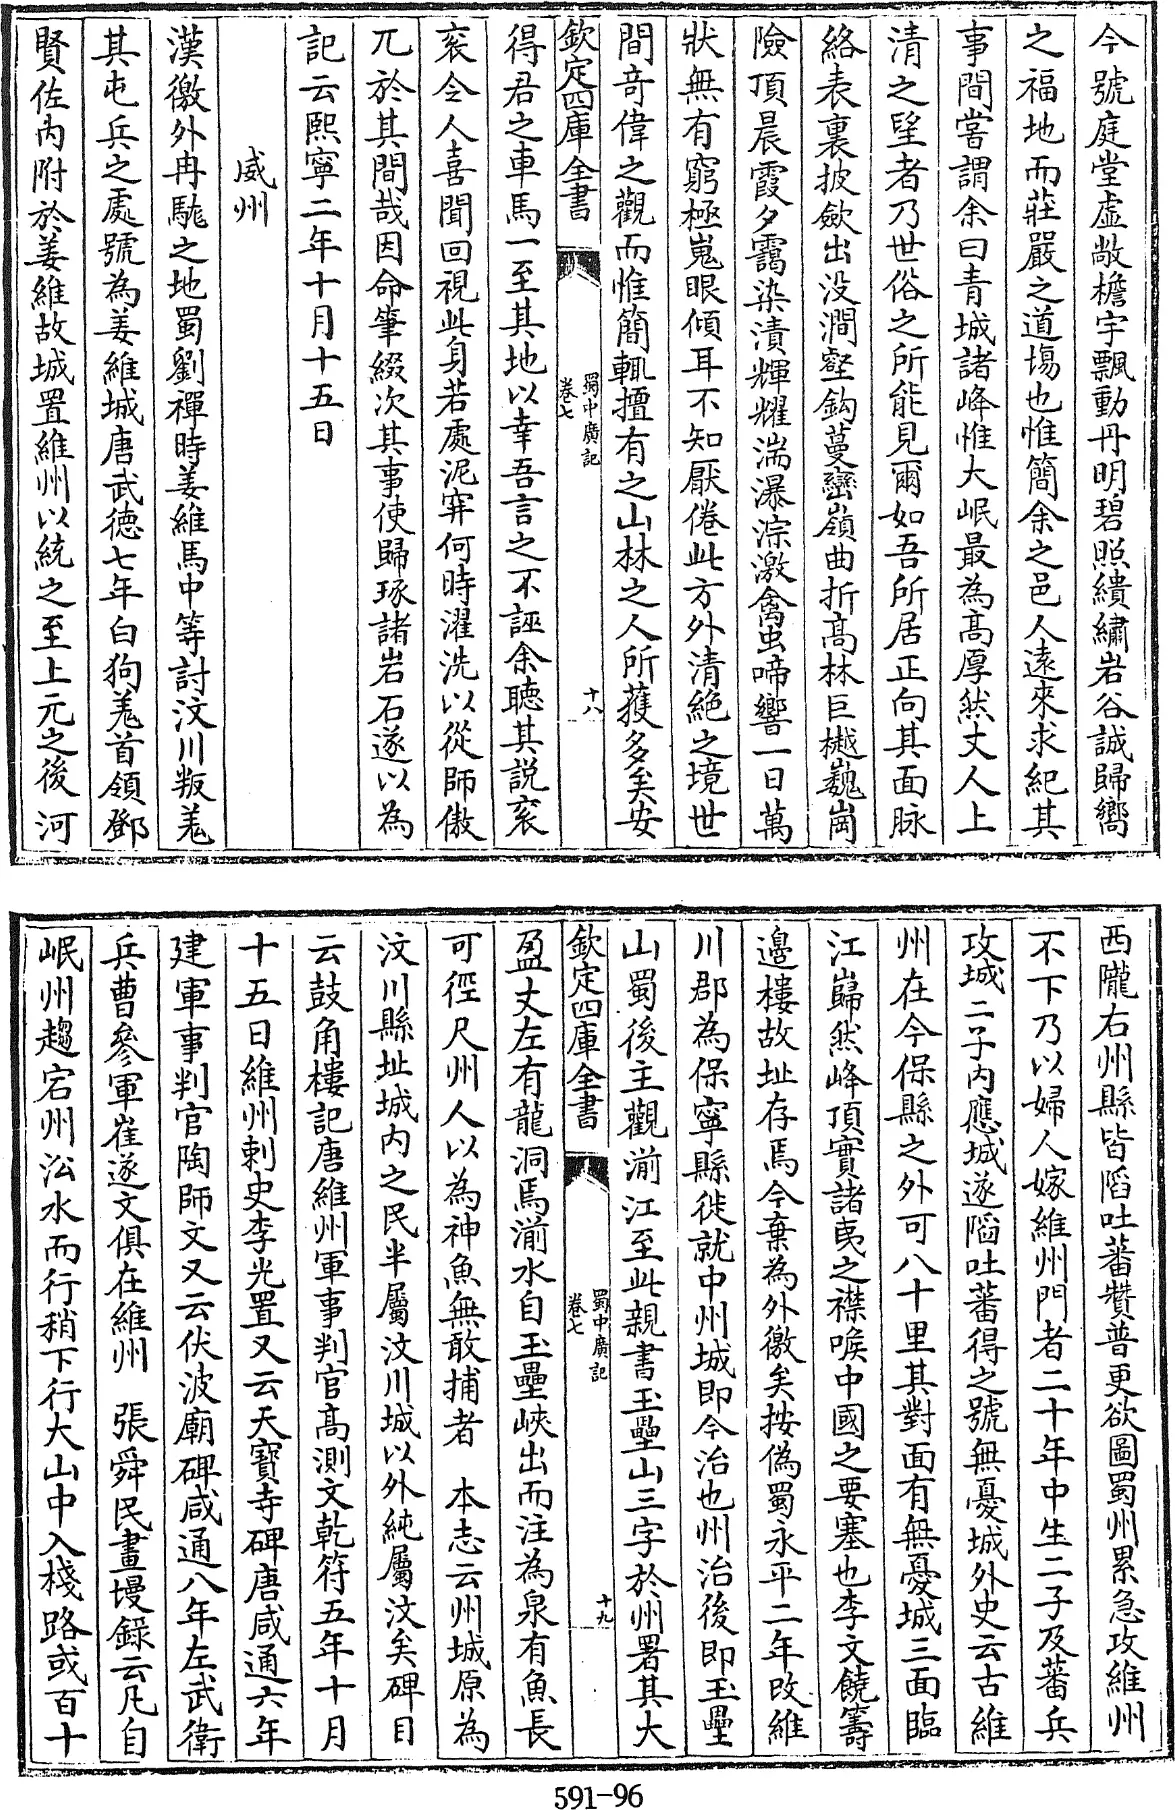 今號庭堂虚敞檐宇飄動丹明碧照繢繡岩谷誠歸嚮
之福地而莊嚴之道塲也惟簡余之邑人遠來求紀其
事間嘗謂余曰青城諸峰惟大岷最為髙厚然丈人上
清之望者乃世俗之所能見爾如吾所居正向其面脉
絡表裏披歛出没澗壑鈎蔓巒嶺曲折髙林巨樾巍崗
險頂晨霞夕靄染漬輝耀湍瀑淙激禽虫啼響一日萬
狀無有窮極嵬眼傾耳不知厭倦此方外清絶之境世
間竒偉之觀而惟簡輙擅有之山林之人所獲多矣安
欽定四庫全書
蜀中廣記
卷七
十八
得君之車馬一至其地以幸吾言之不誣余聽其説衮
衮令人喜聞回視此身若處泥穽何時濯洗以從師傲
兀於其間哉因命筆綴次其事使歸琢諸岩石遂以為
記云熙寧二年十月十五日
威州
漢徼外冉駹之地蜀劉禪時姜維馬中等討汶川叛羌
其屯兵之處號為姜維城唐武德七年白狗羌首領鄧
賢佐内附於姜維故城置維州以統之至上元之後河
西隴右州縣皆䧟吐蕃贊普更欲圖蜀州累急攻維州
不下乃以婦人嫁維州門者二十年中生二子及蕃兵
攻城二子内應城遂䧟吐蕃得之號無憂城外史云古維
州在今保縣之外可八十里其對面有無憂城三面臨
江巋然峰頂實諸夷之襟喉中國之要塞也李文饒籌
邊樓故址存焉今棄為外徼矣按偽蜀永平二年改維
川郡為保寧縣徙就中州城即今治也州治後即玉壘
山蜀後主觀湔江至此親書玉壘山三字於州署其大
欽定四庫全書
蜀中廣記
卷七
十九
盈丈左有龍洞焉湔水自玉壘峽出而注為泉有魚長
可徑尺州人以為神魚無敢捕者　本志云州城原為
汶川縣址城内之民半屬汶川城以外純屬汶矣碑目
云鼓角樓記唐維州軍事判官髙測文乾符五年十月
十五日維州刺史李光置又云天寶寺碑唐咸通六年
建軍事判官陶師文又云伏波廟碑咸通八年左武衛
兵曹參軍崔遂文俱在維州　張舜民畫墁録云凡自
岷州趨宕州㳂水而行稍下行大山中入棧路或百十
591-96